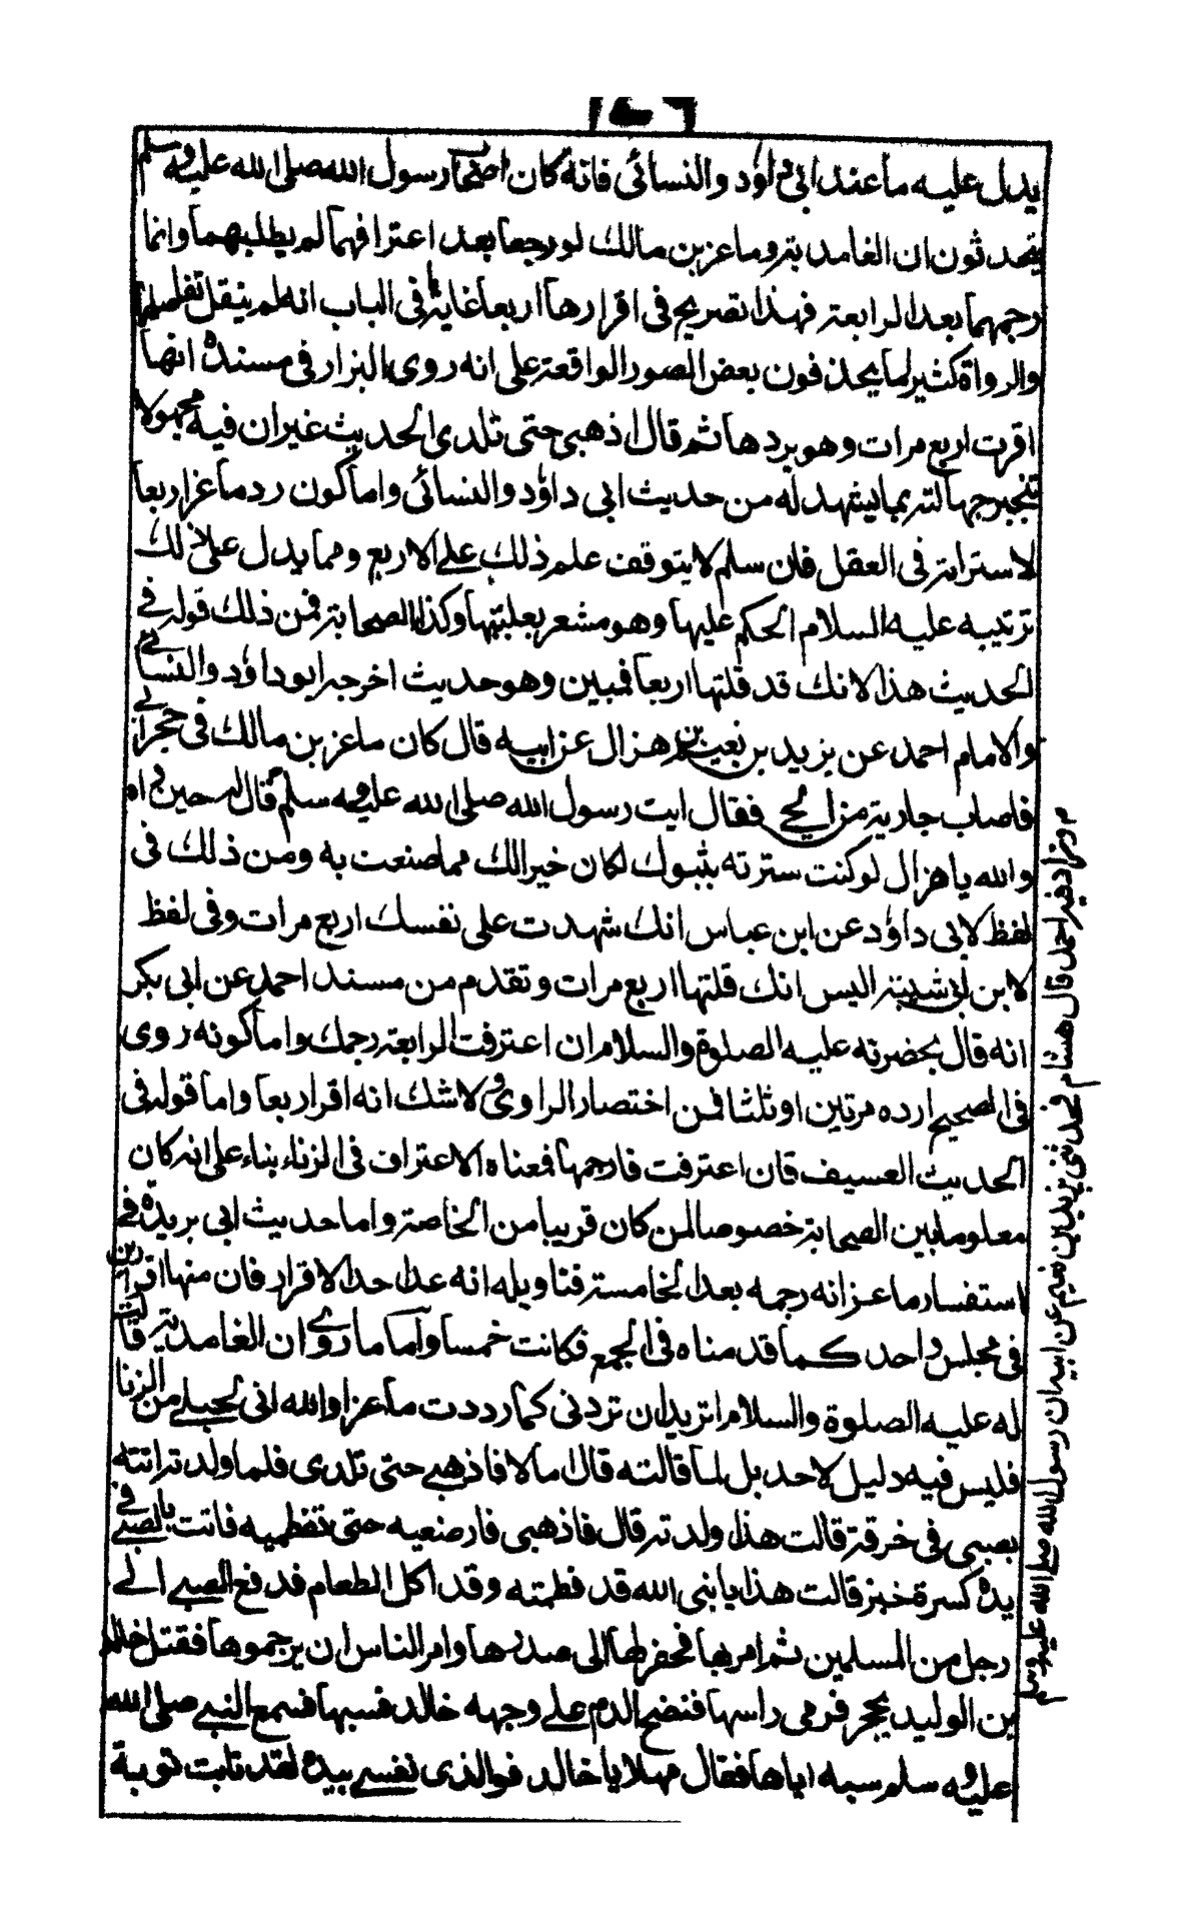 يدل عليه ما عند ابي داؤد والنسائى فانه كان اصحاب رسول الله صلى الله عليه وسلم
يتحدثون ان الغامدية وماعز بن مالك لو رجعا بعد اعترافهما لم يطلبهما وانما
رجمهما بعد الرابعة فهذا تصريح فى اقرارها اربعا غاية فى الباب انه لم ينقل تفصيلها
والرواة كثير لما يحذفون بعض الصور الواقعة على انه روى البزار فى مسنده انها
اقرت اربع مرات وهو يردها ثم قال اذهبى حتى تلدى الحديث غير ان فيه مجهولا
تنجبر جهالته بما يشهد له من حديث ابى داؤد والنسائى واما كون رد ماعز اربعا
لاسترابة فى العقل فان سلم لا يتوقف علم ذلك على الاربع ومما يدل على ذلك
ترتيبه عليه السلام الحكم عليها وهو مشعر بعليتها وكذا الصحابة فمن ذلك قوله فى
الحديث هذا لانك قد قلتها اربعا فمبين وهو حديث اخرجه ابو داؤد والنسائى
والامام احمد عن يزيد بن نعيم بن هزال عن ابيه قال كان ماعز بن مالك فى حجر ابى
فاصاب جارية من الحى فقال ايت رسول الله صلى الله عليه وسلم قال له حين راه
والله يا هزال لو كنت سترته بثوبك لكان خيرا لك مما صنعت به ومن ذلك فى
لفظ لابى داؤد عن ابن عباس انك شهدت على نفسك اربع مرات وفى لفظ
لابن ابى شيبة اليس انك قلتها اربع مرات وتقدم من مسند احمد عن ابى بكر
انه قال بحضرته عليه الصلوة والسلام ان اعترفت الرابعة رجمك واما كونه روى
فى الصحيح رده مرتين او ثلثا فمن اختصار الراوى ولا شك انه اقر اربعا واما قوله فى
الحديث العسيف فان اعترفت فارجمها فمعناه الاعتراف فى الزناء بناء على انه كان
معلوما بين الصحابة خصوصا لمن كان قريبا من الخاصة واما حديث ابى بريدة فى
استفسار ماعز انه رجمه بعد الخامسة فتاويله انه عد احد الاقرار فان منها اقرارين
فى مجلس واحد كما قدمناه فى الجمع فكانت خمسا واما ما روى ان الغامدية قالت
له عليه الصلوة والسلام اتريد ان تردنى كما رددت ماعزا والله انى لحبلى من الزنا
فليس فيه دليل لاحد بل لما قالته قال اما لا فاذهبى حتى تلدى فلما ولدته اتته
بصبى فى خرقة قالت هذا ولدته قال فاذهبى فارضعيه حتى تفطميه فاتت بالصبى فى
يده كسرة خبز قالت هذا يا نبى الله قد فطمته وقد اكل الطعام فدفع الصبى الى
رجل من المسلمين ثم امر بها فحفر لها الى صدرها وامر الناس ان يرجموها فقتل خالد
بن الوليد بحجر فرمى راسها فنضح الدم على وجهه خالد فسبها فسمع النبى صلى الله
عليه وسلم سبه اياها فقال مهلا يا خالد فوالذى نفسى بيده لقد تابت توبة
م وزاد فيه احمد قال هشام فحدثنى يزيد بن نعيم عن ابيه ان رسول الله صلى الله عليه وسلم